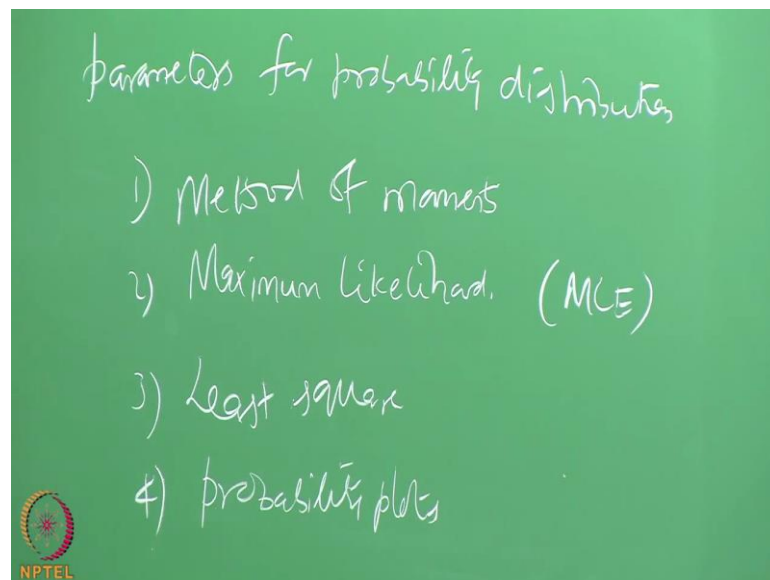 parameters for probability distribution
1) Method of moments
2) Maximum likelihood. (MLE)
3) Least square
4) probability plots
NPTEL